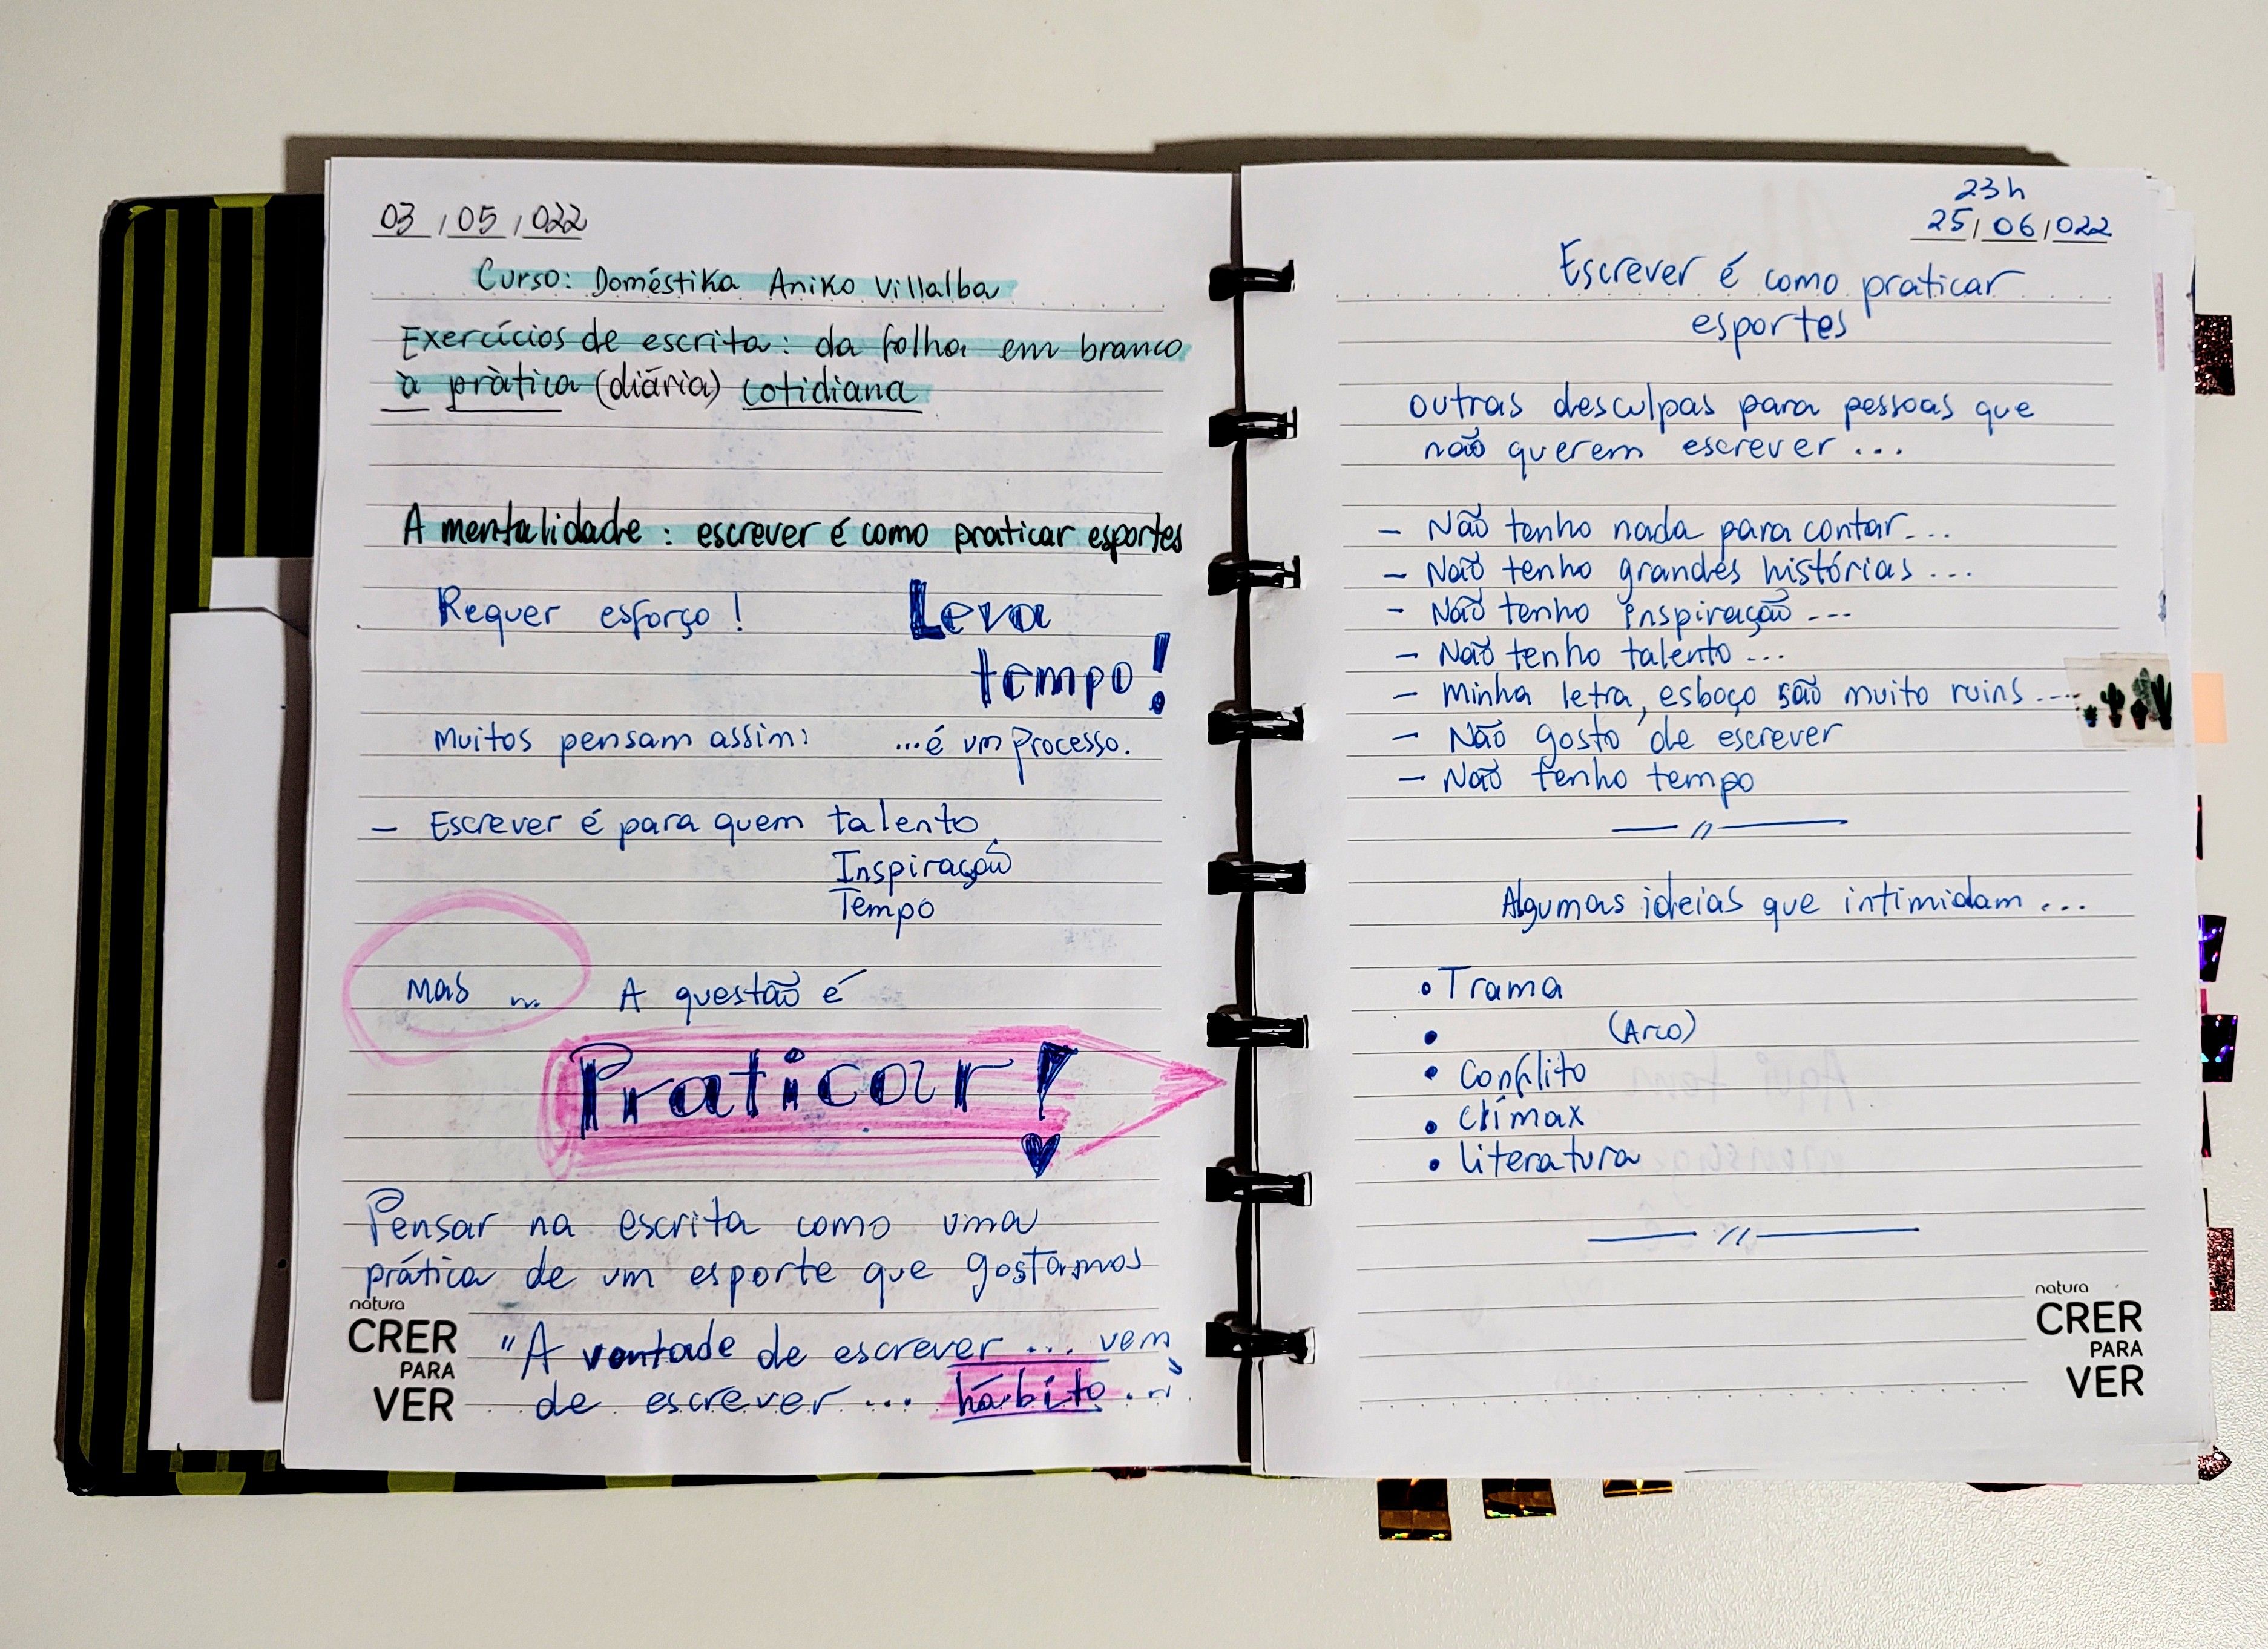 03/05/022
Curso: Doméstika Aniko Villalba
Exercícios de escrita: da folha em branco
à pràtica (diária) cotidiana
A mentalidade: escrever é como praticar esportes
Requer esforço!
Leva
tempo!
Muitos pensam assim:
...é um processo.
- Escrever é para quem talento
Inspiração
Tempo
Mas ...
A questão é
Praticar!
Pensar na escrita como uma
prática de um esporte que gostamos
"A vontade de escrever ... vem
de escrever ... hábito..."
natura
CRER
PARA
VER
23h
25/06/022
Escrever é como praticar
esportes
outras desculpas para pessoas que
não querem escrever ...
- Não tenho nada para contar...
- Não tenho grandes histórias ...
- Não tenho inspiração ...
- Não tenho talento ...
- Minha letra, esboço são muito ruins ...
- Não gosto de escrever
- Não tenho tempo
Algumas ideias que intimidam ...
• Trama
• (Arco)
• Conflito
• Clímax
• Literatura
natura
CRER
PARA
VER